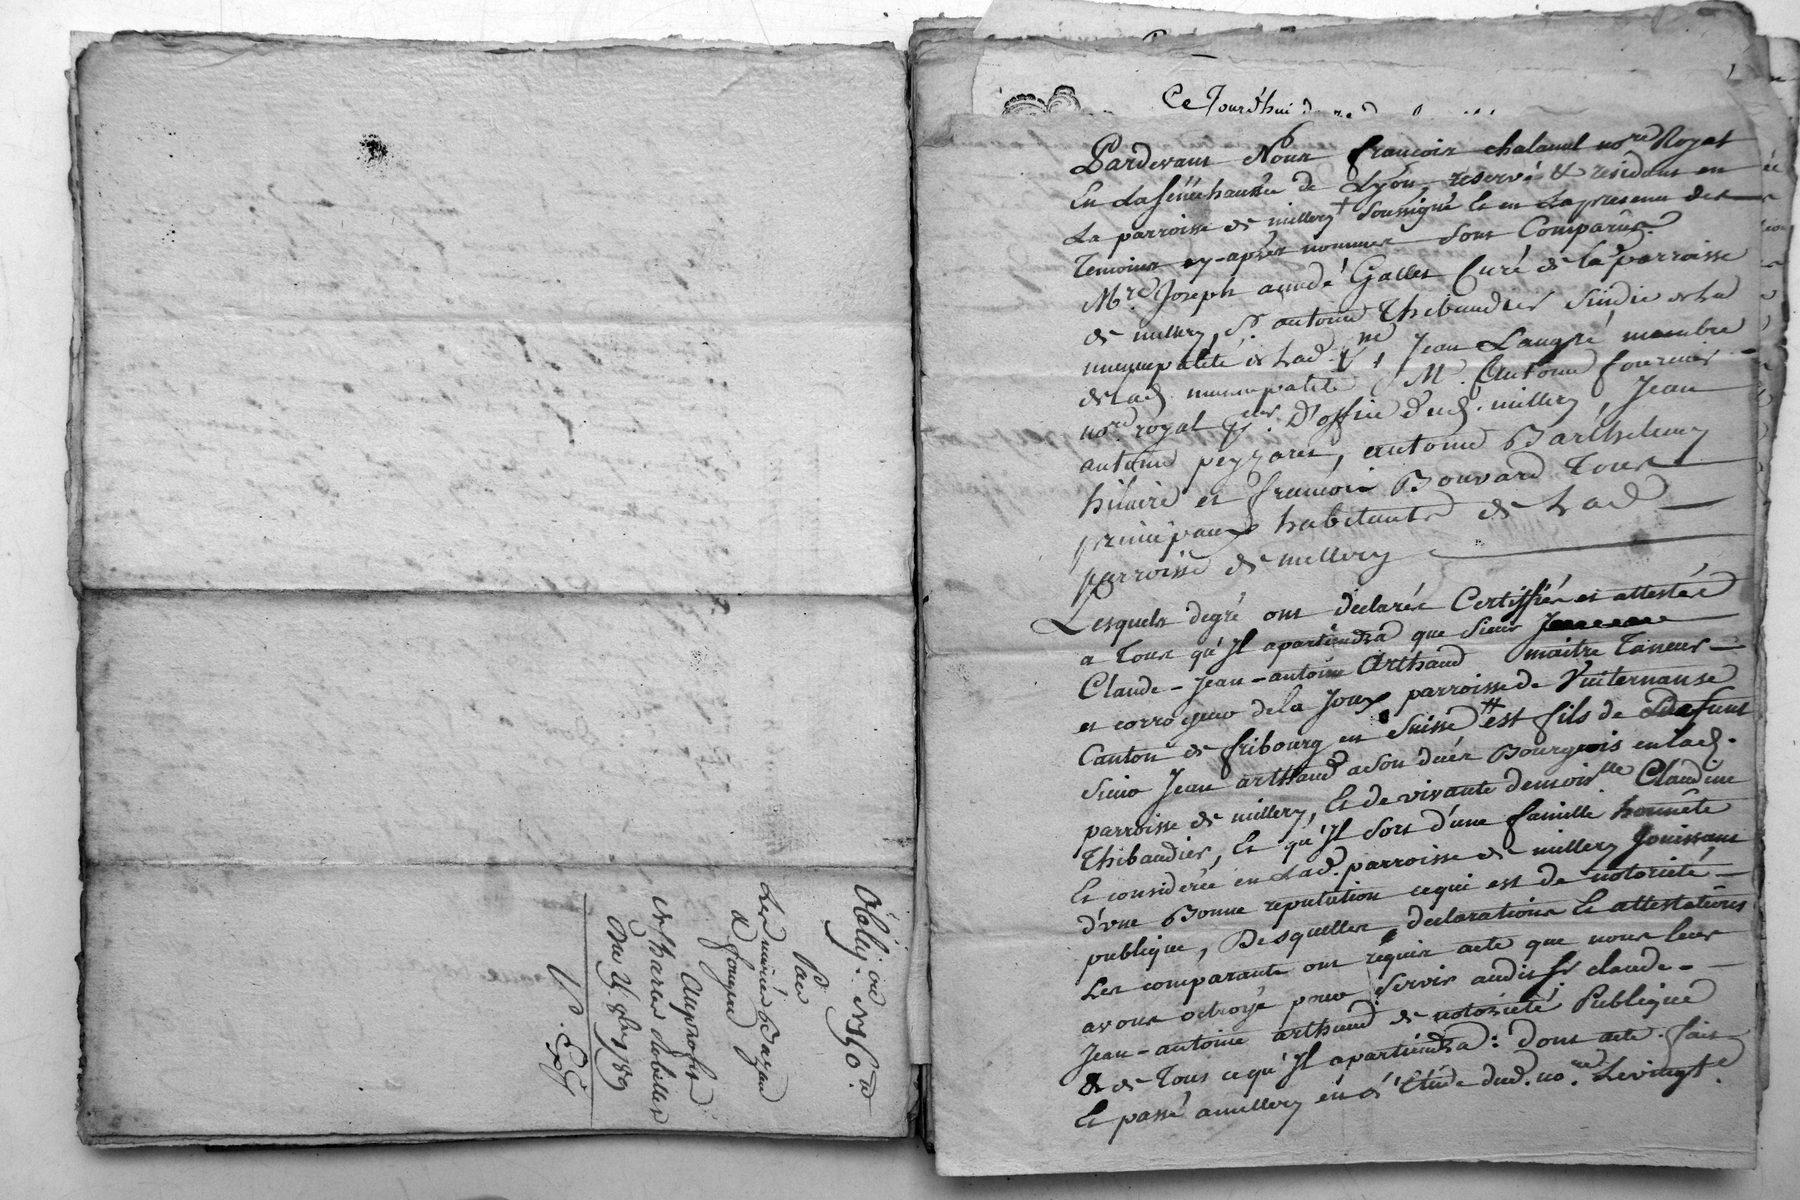 Oblig.on de 540.#
Par
Les mariés Bazan
& fougere
Au profit
de Charles dobillier
Du 24. 8bre 1789
Ce Jourd'hui
Pardevant Nous francois chalamel no.re Royal
En La senechaussée de Lyon, reservé & residant en
La parroisse de millery + soussigné et en La presence des
Temoins cy-après nommés sont Comparûs
M.re Joseph aimdé Gallet Curé de la parroisse
de millery, S.r antoine Thibaudier sindic de La
municipalité de Lad. p.sse, Jean Laugré membre
de Lad. municipalité, M.e Antoine fournier
no.re royal g.er d'office dud. millery, Jean
antoine peyzaret, antoine Barthelemy
hilaire et francois Bouvard Tous
principaux habitants de Lad.
parroisse de millery
Lesquels degré ont declarés Certiffiés et attestés
a Tous qu'Il apartiendra que sieur
Claude-Jean-antoine Arthaud maitre Taneur
et corroyeur de la Joux parroisse de Vuiternanse
Canton de fribourg en Suisse # est fils de defunt
sieur Jean arthaud a son decès Bourgeois en lad.
parroisse de millery, Et de vivante demois.lle Claudine
Thibaudier, Et qu'Il sort d'une famille honnête
Et considerée en Lad. parroisse de millery Jouissant
d'une Bonne reputation ce qui est de notorieté
publique, Desquelles declarations Et attestations
Les comparants ont requis acte que nous leur
avons octroyé pour servir audit S.r claude-
Jean-antoine arthaud de notorieté Publique
& de Tous ce qu'Il apartiendra: dont acte fait
Et passé a millery en L'Etude dud. no.re Le vingt